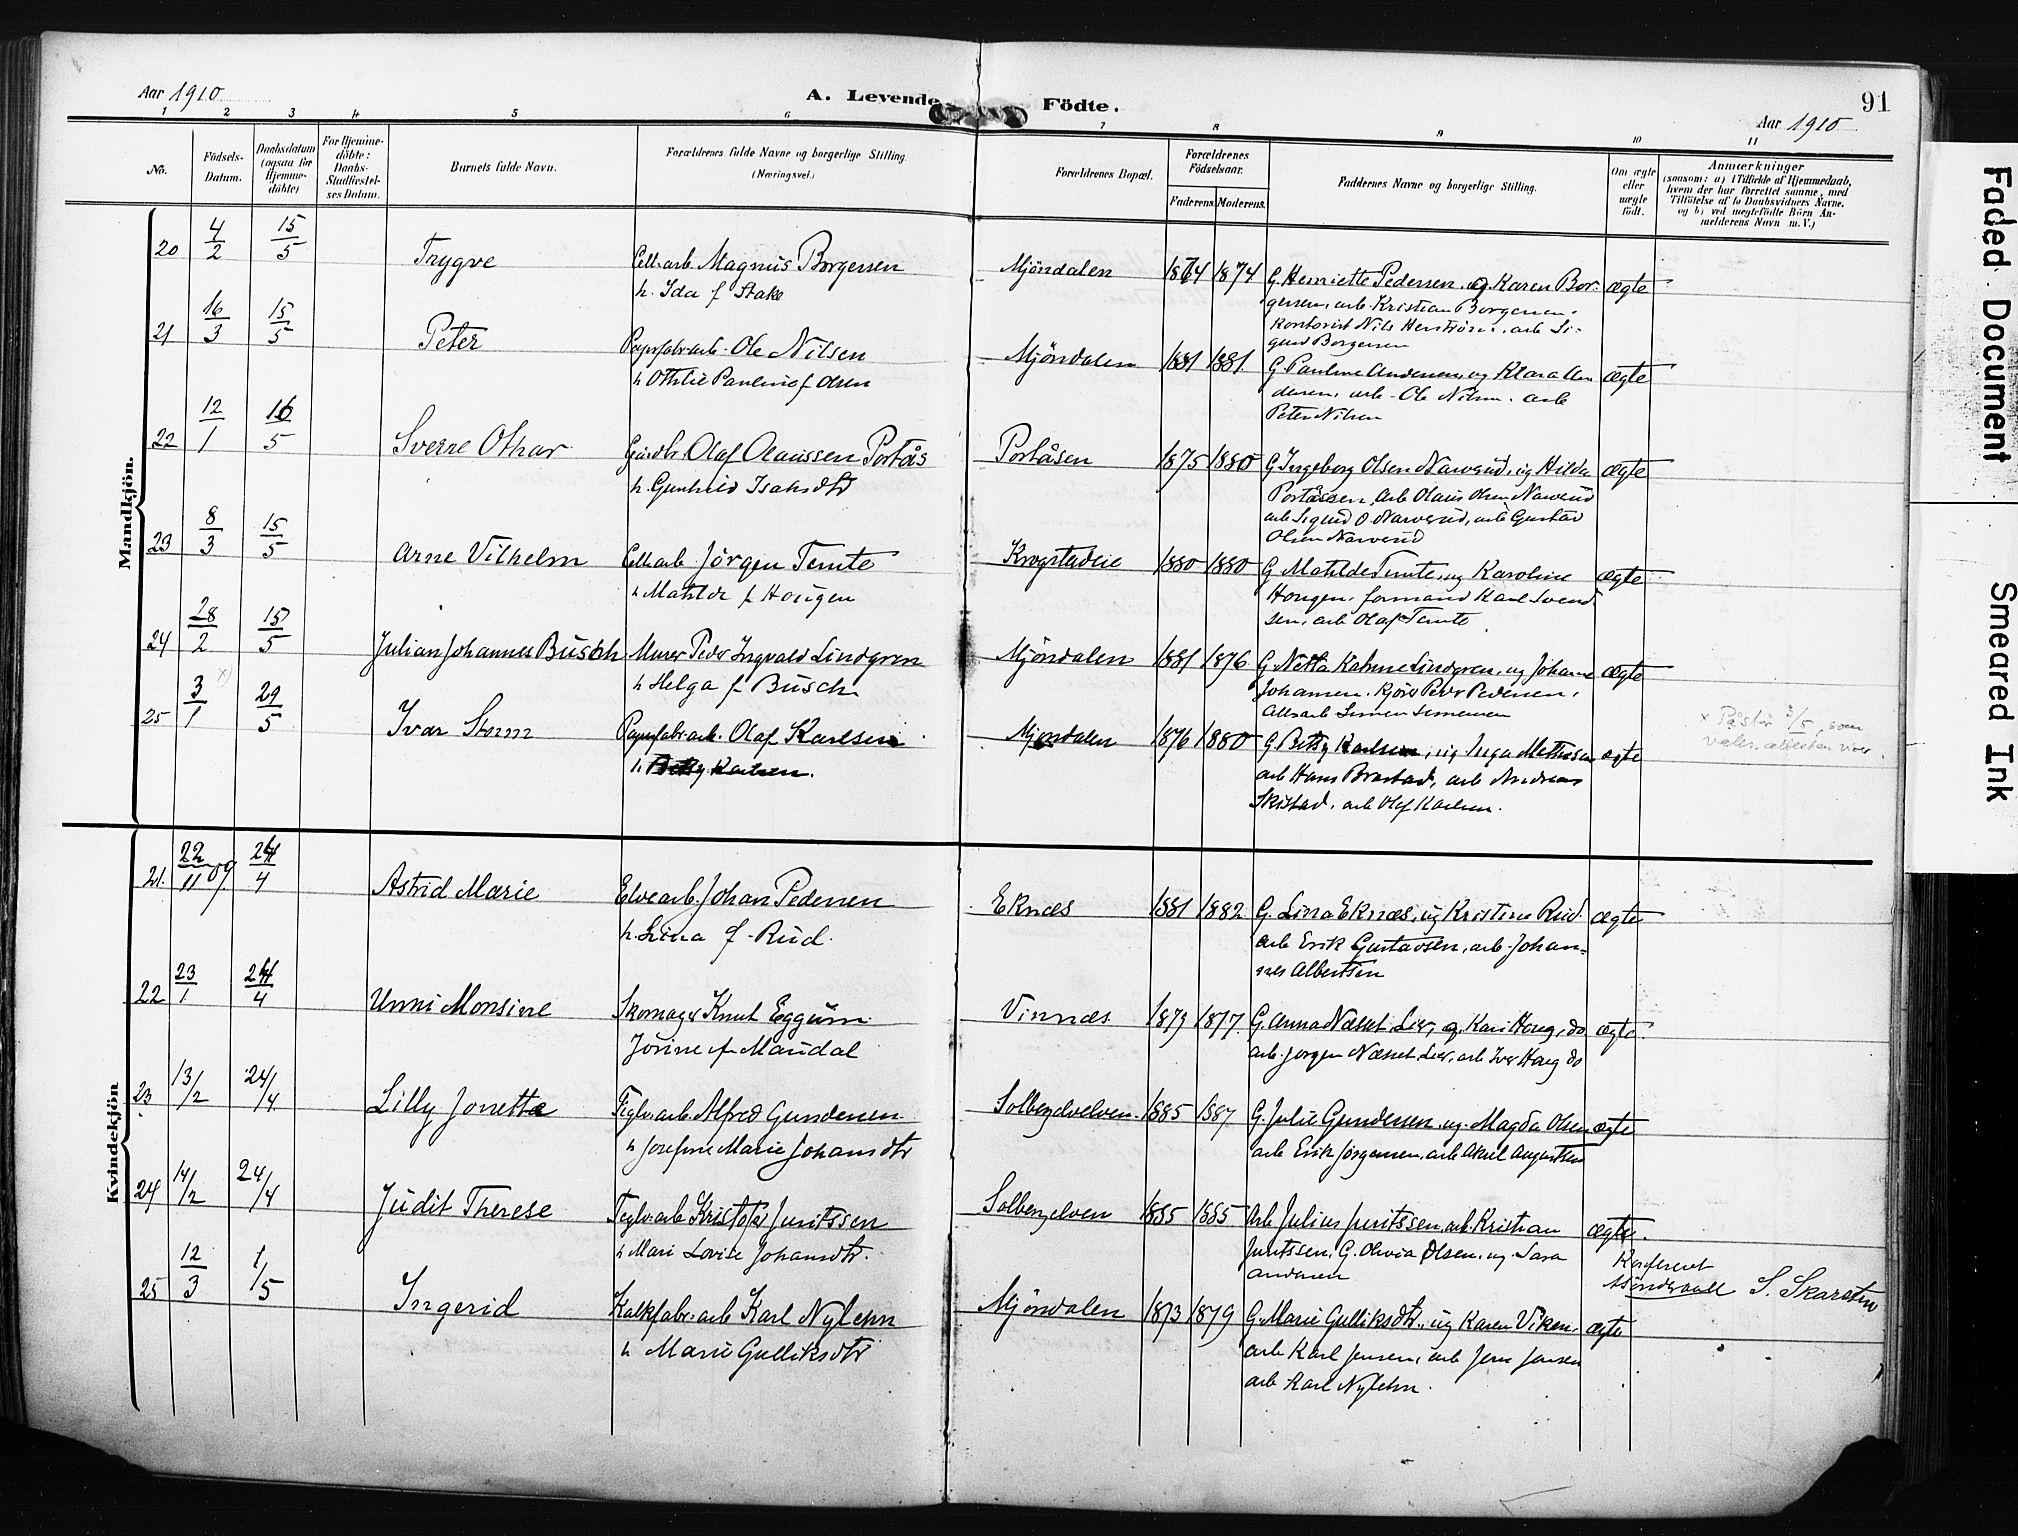 Aar 1910
A. Levende Födte.
91
Aar 1910
1 2 3 4 5 6 7 8 9 10 11
No.
Födsels-Datum.
Daabsdatum (ogsaa for Hjemmedöbte)
For Hjemmedöbte: Daabs-Stadfæstelses Datum.
Barnets fulde Navn.
Forældrenes fulde Navne og borgerlige Stilling. (Næringsvei.)
Forældrenes Bopæl.
Forældrenes Födselsaar.
Faderens. Moderens.
Faddernes Navne og borgerlige Stilling.
Om ægte eller uægte födt.
Anmærkninger
(saasom: a) i Tilfælde af Hjemmedaab,
hvem der har forrettet samme, med
Tilföielse af to Daabsvidners Navne.
og b) ved uægtefödte Börn An-
melderens Navn m.V.)
Mandkjön.
20 4/2 15/5 Trygve Cell.arb. Magnus Borgersen Mjöndalen 1874 G Henriette Pedersen og Karen Bor- ægte
h. Ida f Stake gersen, arb. Kristian Borgersen,
kontorist Nils arb Si-
gurd Borgersen
21 16/3 15/5 Peter Papirfabr.arb. Ole Nilsen Mjöndalen 1881 1881 G Pauline Andersen, og Klara An ægte
h Othilie Pauline f Olsen dersen, arb. Ole Nilsen. arb
Peter Nilsen
22 12/1 16/5 Sverre Othar Gårdbr. Olaf Olaussen Portås Portåsen 1875 1880 G Ingeborg Olsen Narverud, og Hilda ægte
h. Gunhild Isaksdtr Portåsen, arb Olaus Olsen Narverud
arb Sigurd O. Narverud, arb Gustav
Olsen Narverud
23 8/3 15/5 Arne Vilhelm Cell.arb. Jörgen Temte Krogstadeie 1880 1880 G Mathilde Temte, og Karoline ægte
h Mathilde f Hougen Hougen, formand Karl Svend
sen, arb Olaf Temte
24 28/2 15/5 Julian Johannes Busch Murer Peder Ingvald Lindgren Mjöndalen 1881 1876 G Netta Lindgren, og Johanne ægte
h Helga f Busch Johansen. Peder Pedersen,
Simen Simensen
25 3/1 x) 29/5 Ivar Storm Papirfabr.arb. Olaf Karlsen Mjöndalen 1876 1880 G Betsy Karlsen, og Inga Mathisen ægte
h Betsy Karlsen. arb Hans Brastad, arb Andreas
Skistad, arb Olaf Karlsen.
x Påstår 3/5, som
viser.
Kvindekjön
21. 22/11 09 24/4 Astrid Marie Elvearb. Johan Pedersen Eknæs 1881 1882 G. Lina Eknæs, og Kristine Rud. ægte
h. Lina f. Rud. arb Erik Gustavsen, arb. Johan-
nes Albertsen
22 23/1 24/4 Unni Monsine Skomager Knut Eggum Vinnæs 1879 1877 G. Anna Næsset Lier, og Kari Haug, do ægte.
Jörine f. Maudal arb. Jorgen Næsset Lier, arb Iver Haug do
23 13/2 24/4 Lilly Jonette Teglv.arb. Alfred Gundersen Solbergelven 1885 1887 G. Julie Gundersen og Magda Olsen ægte
h Josefine Marie Johansdtr arb Erik Jörgensen, arb Aksel Augustsen
24 14/2 24/4 Judit Therese Teglv.arb Kristofer Juritssen Solbergelven 1885 1885 Arb Julius Juritssen, arb. Kristian ægte.
h Mari Lovise Johansdtr. Juritssen, G. Olivia Olsen, og Sara
Andersen
Konfereret
S. Skarsten
25 12/3 1/5 Ingerid Kalkfabr.arb Karl Nylehn Mjöndalen 1873 1879 G. Marie Gulliksdtr., og Karen Viken, ægte
h Marie Gulliksdtr arb Karl Jensen, arb Jens Jensen
arb Karl Nylehn.
Faded Document
Smeared Ink